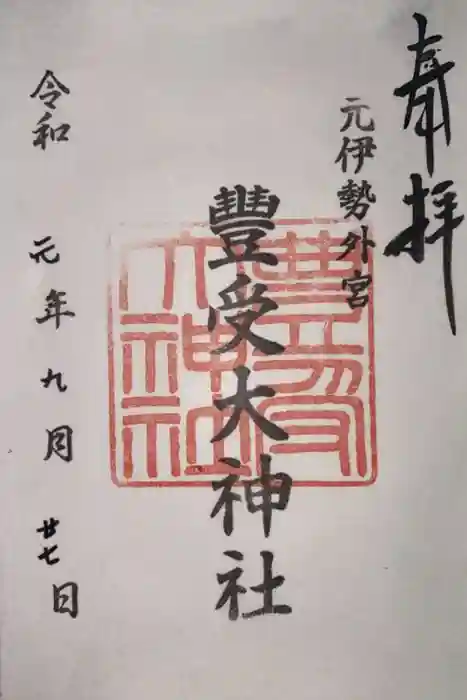 奉拝
元伊勢外宮
豐受大神社
豊受
大神社
令和元年九月廿七日